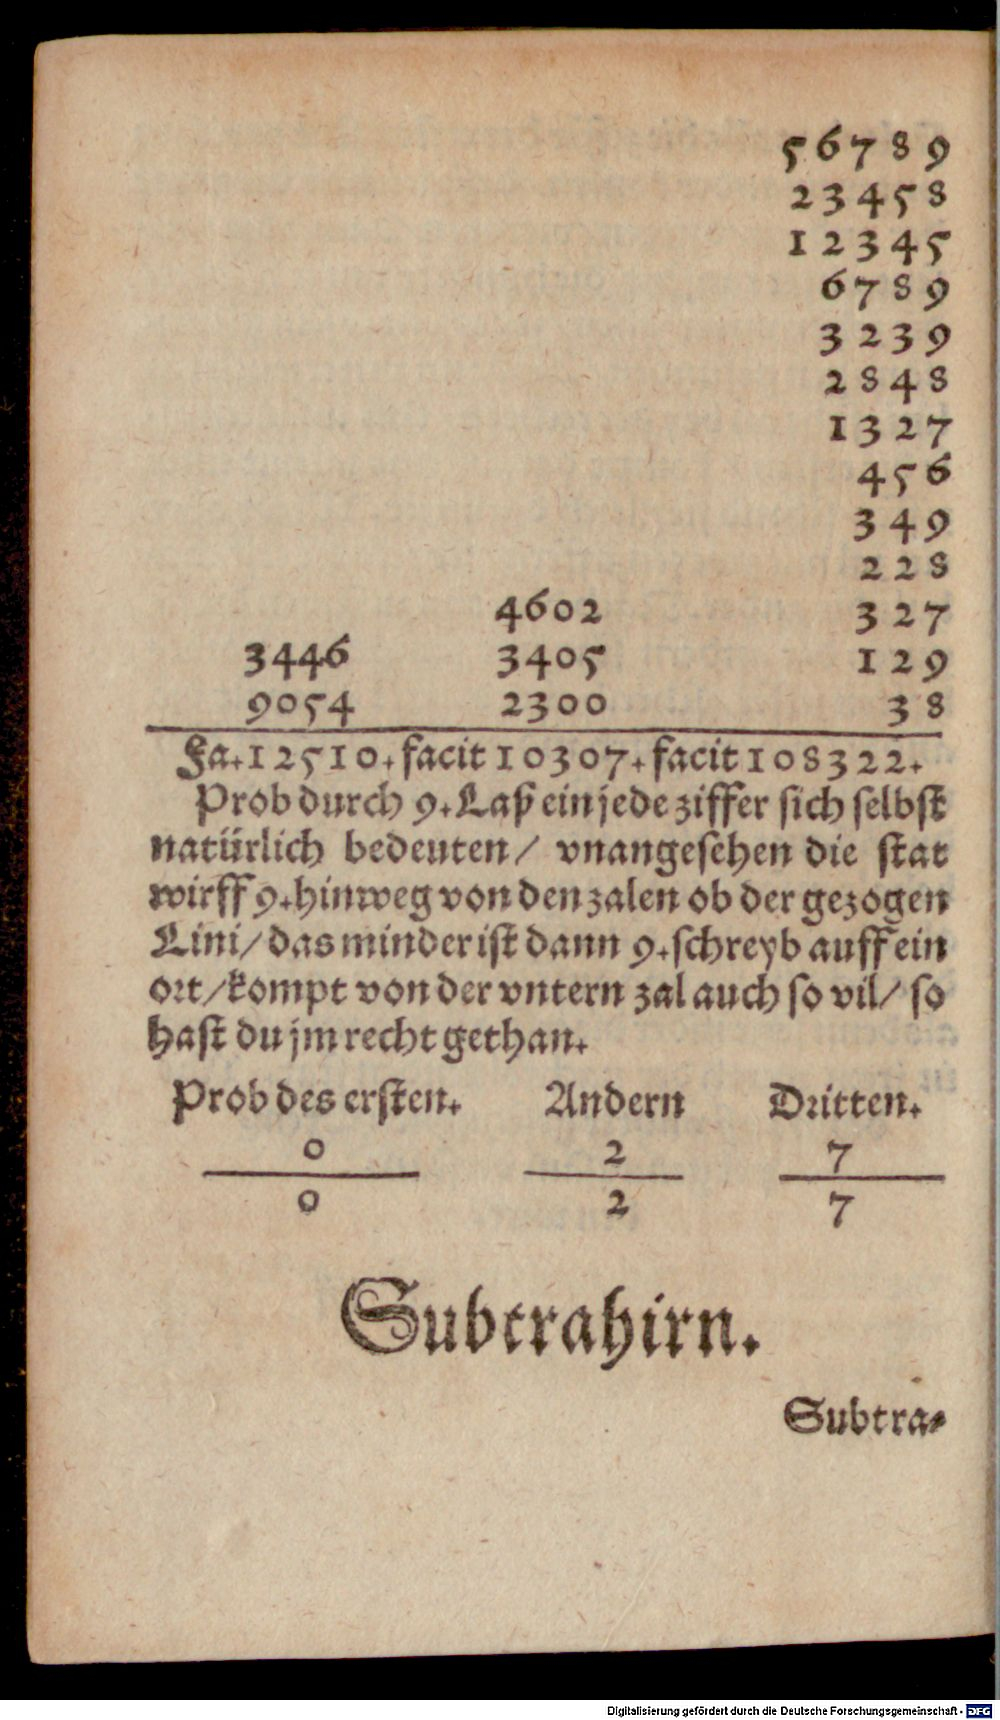 56789
23458
12345
6789
3239
2848
1327
456
349
228
4602 327
3446 3405 129
9054 2300 38
Fa.12510. facit 10307. facit 108322.
Prob durch 9. Laß ein jede ziffer sich selbst
natürlich bedeuten/ vnangesehen die stat
wirff 9. hinweg von den zalen ob der gezogen
Lini/ das minder ist dann 9. schreyb auff ein
ort/ kompt von der vntern zal auch so vil/ so
hast du jm recht gethan.
Prob des ersten. Andern Dritten.
0 2 7
0 2 7
Subtrahirn.
Subtra⸗
Digitalisierung gefördert durch die Deutsche Forschungsgemeinschaft - DFG